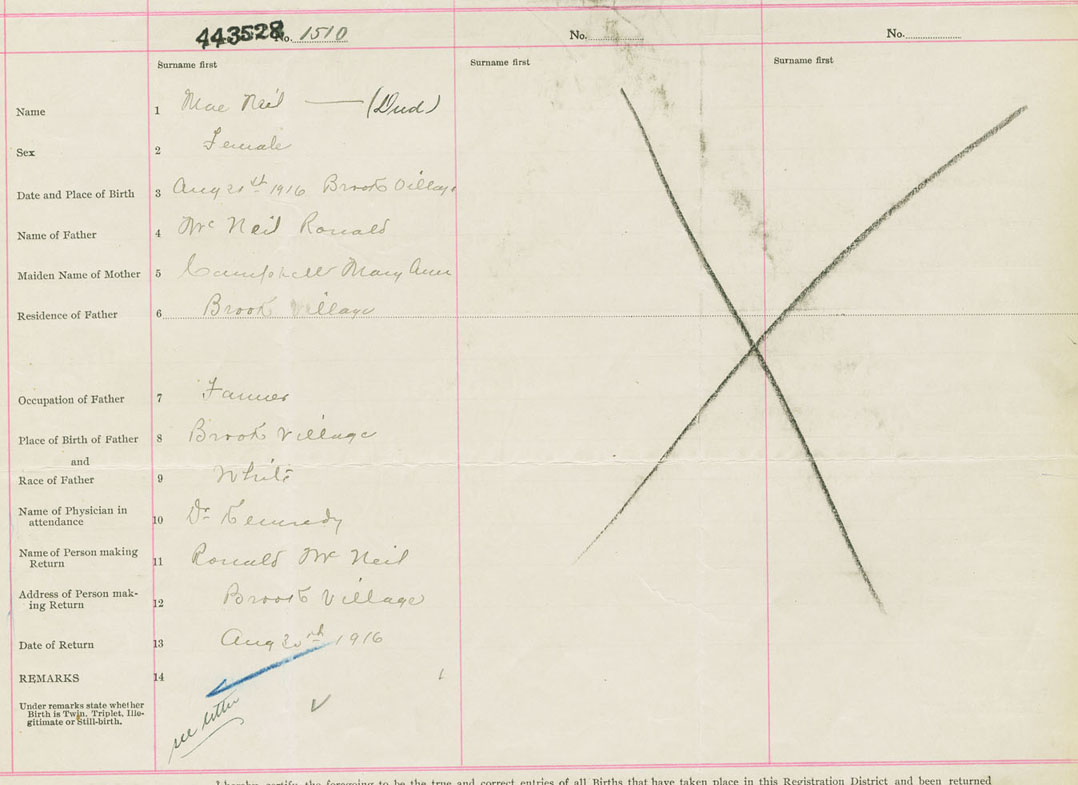 443528 No. 1510
No.
No.
Surname first
Surname first
Surname first
Name 1 Mac Neil — (Dead)
Sex 2 Female
Date and Place of Birth 3 Aug 1916 Brook Village
Name of Father 4 Mc Neil Ronald
Maiden Name of Mother 5 Campbell Mary Ann
Residence of Father 6 Brook Village
Occupation of Father 7 Farmer
Place of Birth of Father 8 Brook Village
and
Race of Father 9 White
Name of Physician in
attendance 10 Dr Kennedy
Name of Person making
Return 11 Ronald Mc Neil
Address of Person mak-
ing Return 12 Brook Village
Date of Return 13 Aug 1916
REMARKS 14
Under remarks state whether
Birth is Twin, Triplet, Ille-
gitimate or Still-birth.
see letter
I hereby certify the foregoing to be the true and correct entries of all Births that have taken place in this Registration District and been returned